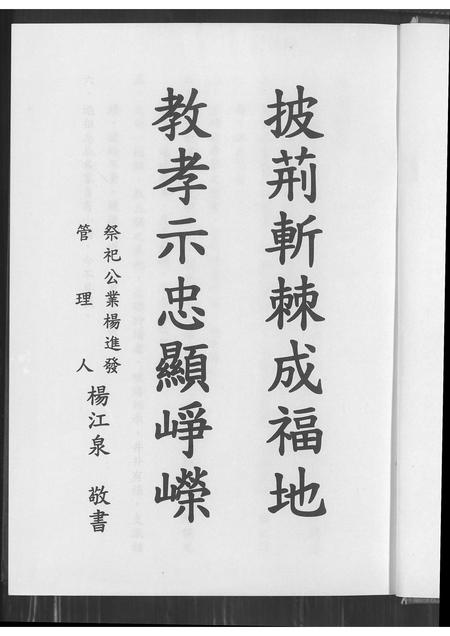 披荊斬棘成福地
教孝示忠顯崢嶸
祭祀公業楊進發
管理人
楊江泉 敬書